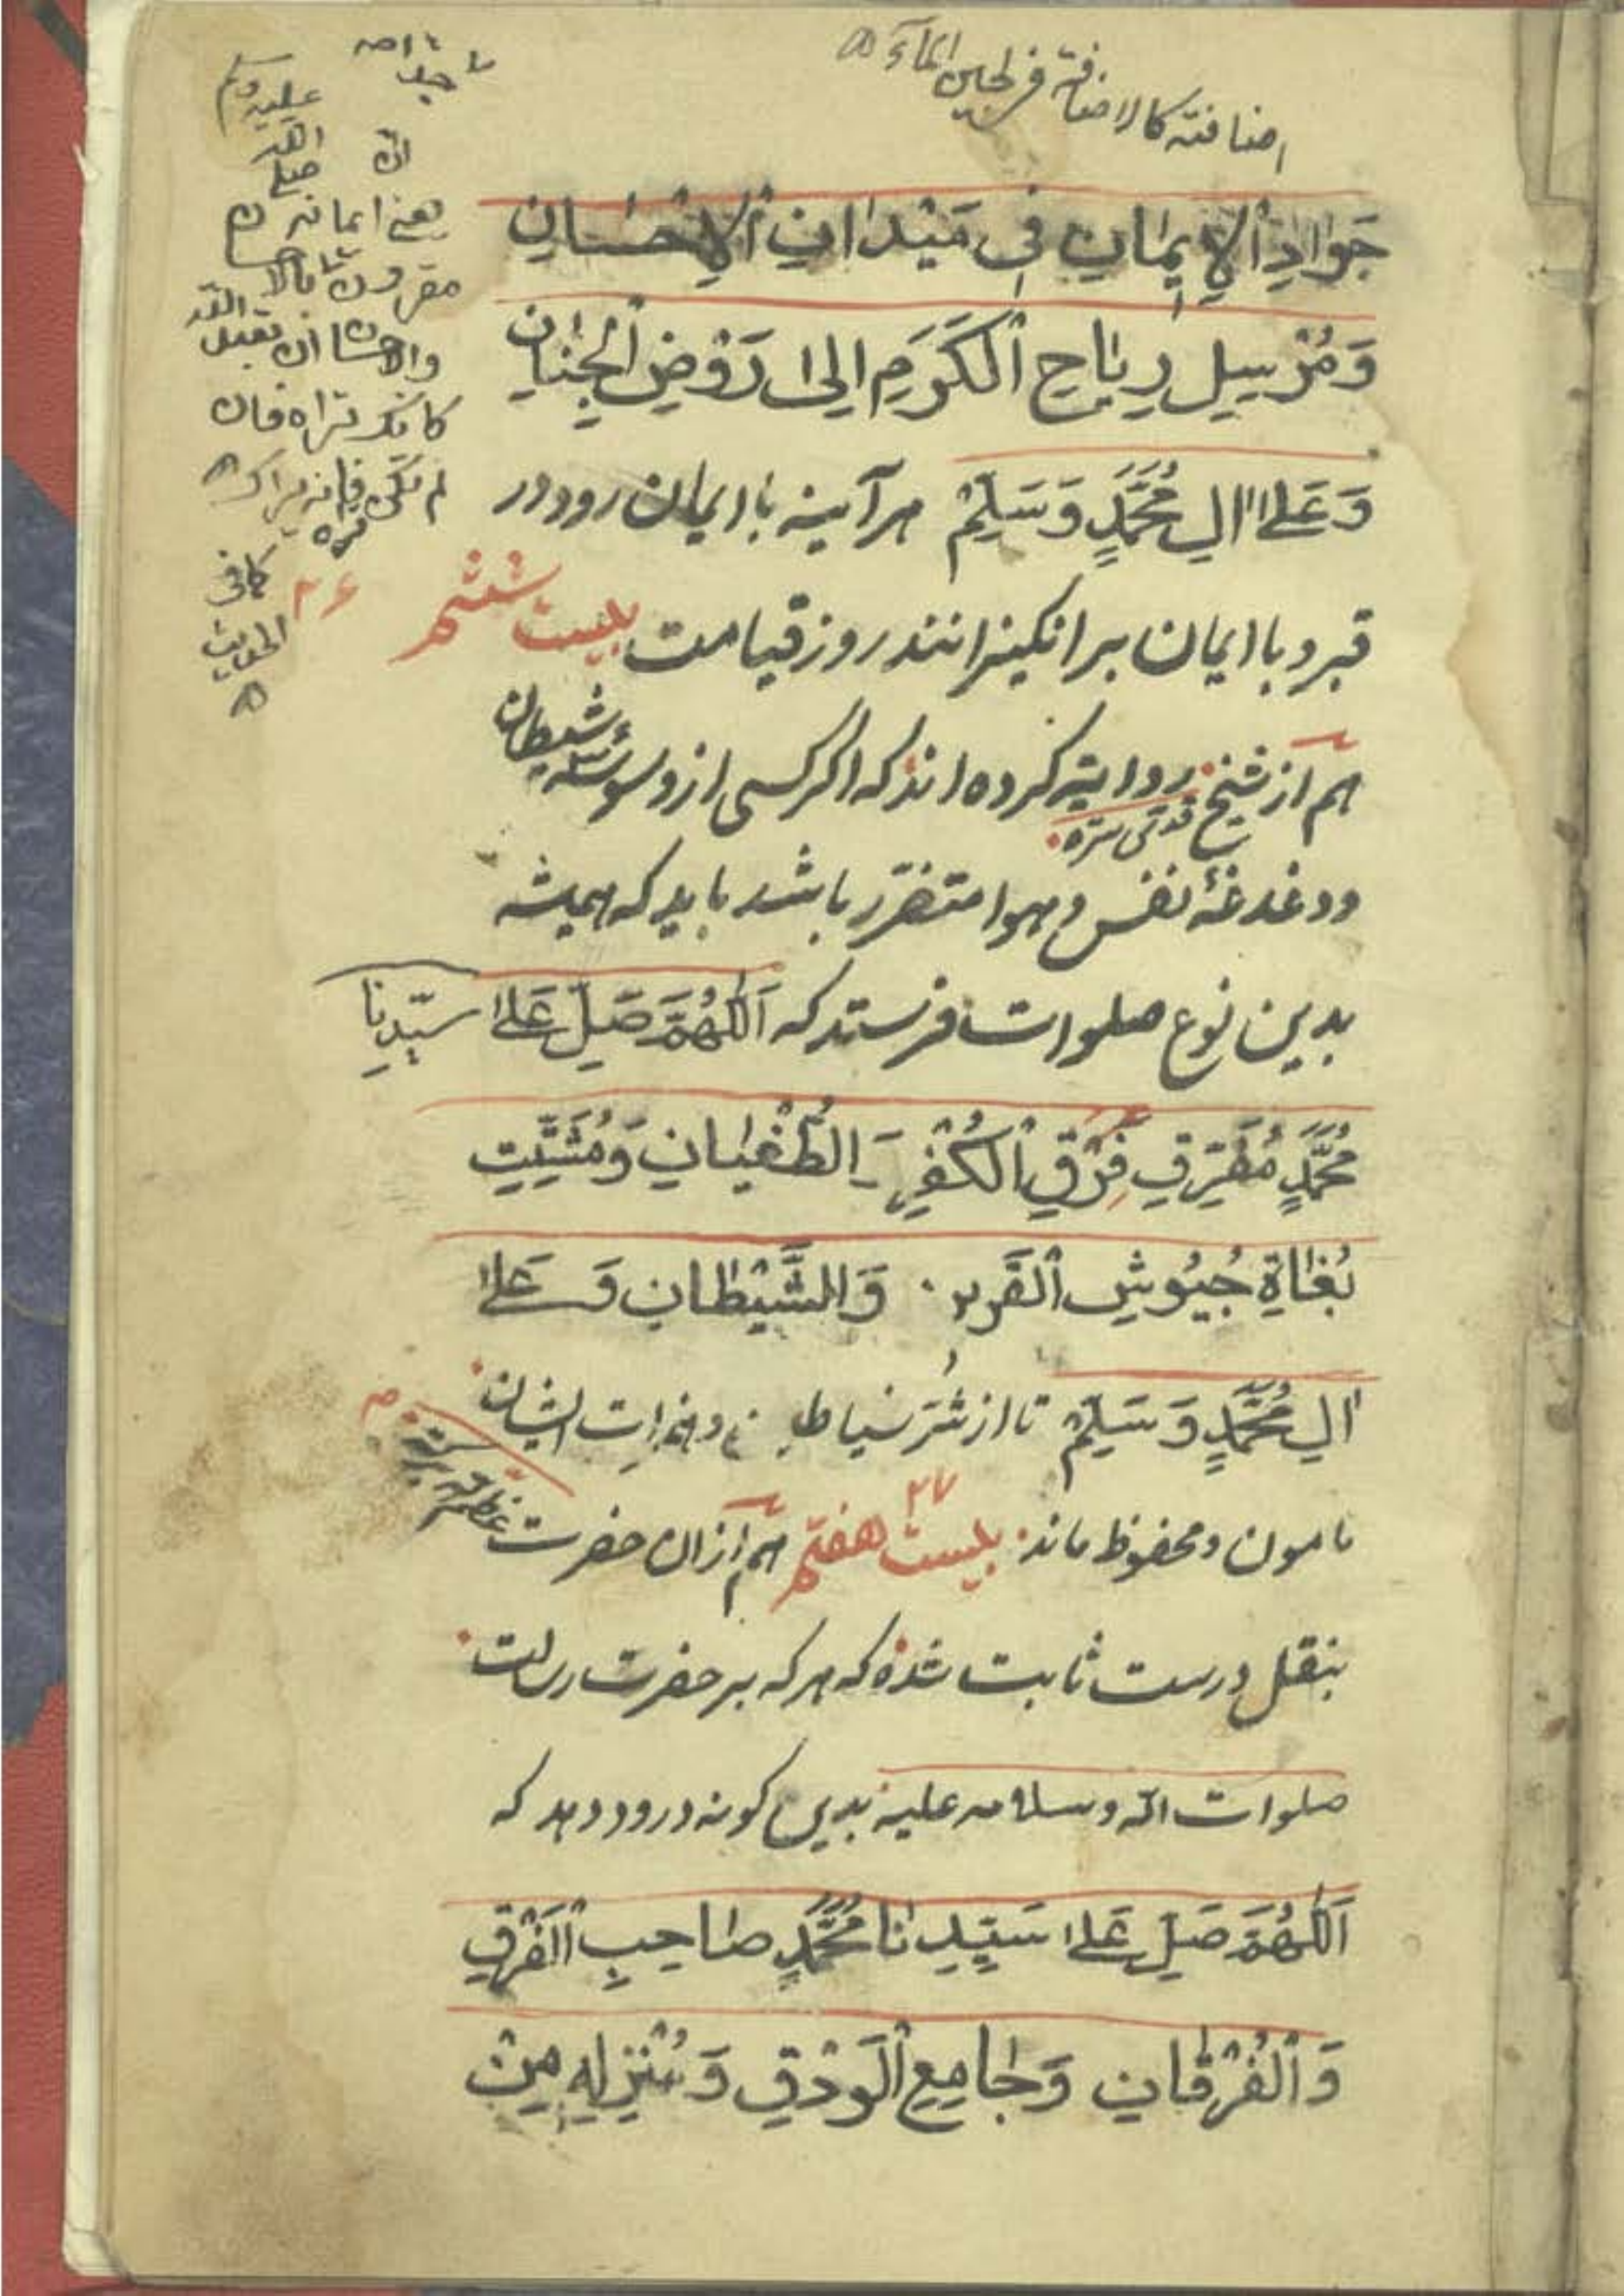 اضافته كالاضافة فى لجين الماء
جَوَادِ الْإِيمَانِ فِى مَيْدَانِ الْإِحْسَانِ
وَمُرْسِلِ رِيَاحِ الْكَرَمِ اِلى رَوْضِ الْجِنَانِ
وَعَلى الِ مُحَمَّدٍ وَسَلِّمْ هرآينه با ايمان رود در
قبر و با ايمان برانكيزانند روز قيامت بيست ششم
هم از شيخ قدس سره روايت كرده اند كه اكر كسى از وسوسۀ شيطان
ودغدغۀ نفس و هوا متضرّر باشد بايد كه هميشه
بدين نوع صلوات فرستد كه اَللّهُمَّ صَلِّ عَلى سيّدِنا
مُحَمَّدٍ مُفَرِّقِ فِرَقِ الْكُفْرِ الطُّغْيَانِ وَمُشَتِّتِ
بُغَاةِ جُيُوشِ الْقَرِينِ وَالشَّيْطَانِ وَعَلى
الِ مُحَمَّدٍ وَسَلِّمْ تا از شرّ شياطين و ايشان
مامون ومحفوظ ماند بيست هفتم ٢٧ هم از ان حضرت
بنقل درست ثابت شده كه هر كه بر حضرت رسالت
صلوات الله وسلامه عليه بدين كونه درود دهد كه
اَللّهُمَّ صَلِّ عَلى سَيِّدِنَا مُحَمَّدٍ صَاحِبِ الْفَرْقِ
وَالْفُرْقَانِ وَجَامِعِ الْوَرَقِ وَمُنْزِلِهِ مِنْ
صلى الله عليه وسلم
يعنى ايمانه
مقرون بالاحسان
والاحسان ان تعبد الله
كانك تراه فان
لم تكن تراه فانه يراك
كما فى
الحديث
٢٦